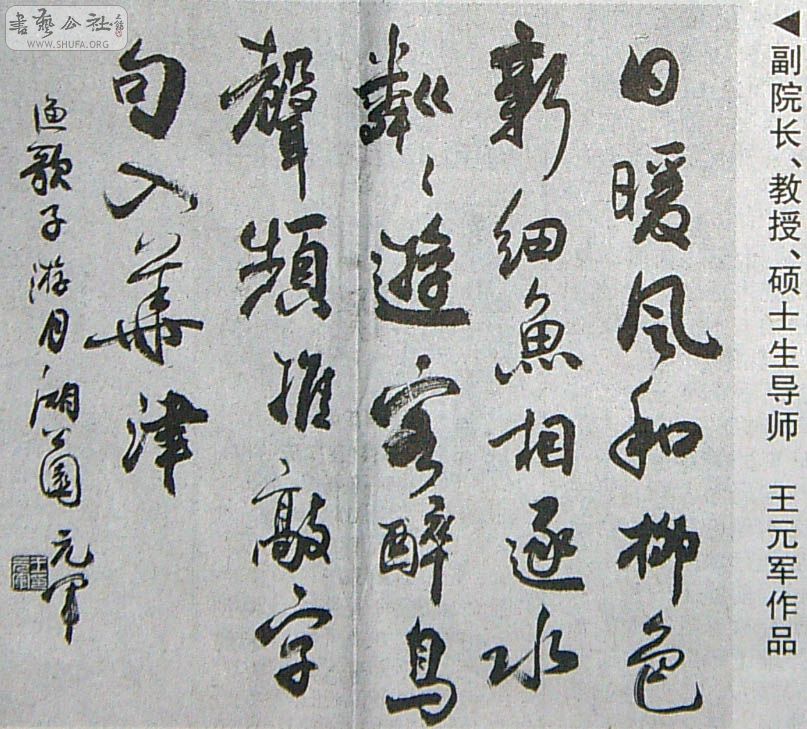 書藝公社
WWW.SHUFA.ORG
◀副院长、教授、硕士生导师 王元军作品
日暖风和柳色
新細魚相逐水
粼〻遊客醉鳥
聲頻推敲字
句入華津
渔歌子游月湖公園 元军